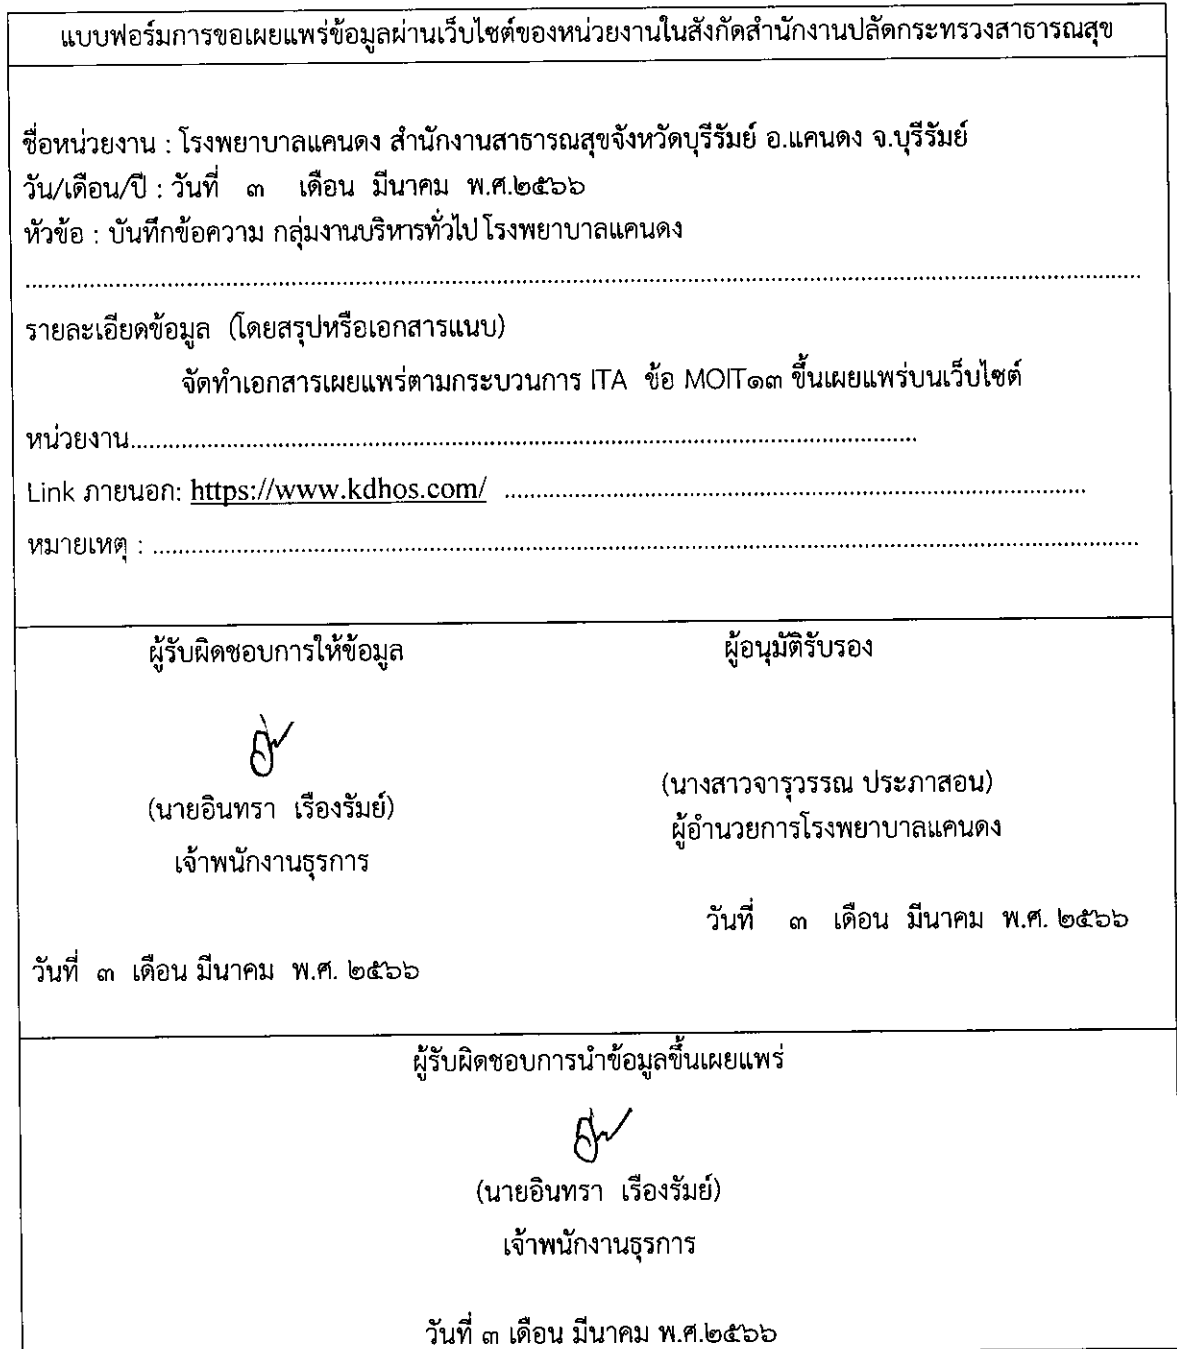 แบบฟอร์มการขอเผยแพร่ข้อมูลผ่านเว็บไซต์ของหน่วยงานในสังกัดสำนักงานปลัดกระทรวงสาธารณสุข
ชื่อหน่วยงาน : โรงพยาบาลแคนดง สำนักงานสาธารณสุขจังหวัดบุรีรัมย์ อ.แคนดง จ.บุรีรัมย์
วัน/เดือน/ปี : วันที่ ๓ เดือน มีนาคม พ.ศ.๒๕๖๖
หัวข้อ : บันทึกข้อความ กลุ่มงานบริหารทั่วไป โรงพยาบาลแคนดง
รายละเอียดข้อมูล (โดยสรุปหรือเอกสารแนบ)
จัดทำเอกสารเผยแพร่ตามกระบวนการ ITA ข้อ MOIT๑๓ ขึ้นเผยแพร่บนเว็บไซต์
หน่วยงาน..........
Link ภายนอก: https://www.kdhos.com/ ..........
หมายเหตุ : ..........
ผู้รับผิดชอบการให้ข้อมูล ผู้อนุมัติรับรอง
(นางสาวจารุวรรณ ประภาสอน)
(นายอินทรา เรืองรัมย์)
ผู้อำนวยการโรงพยาบาลแคนดง
เจ้าพนักงานธุรการ
วันที่ ๓ เดือน มีนาคม พ.ศ. ๒๕๖๖
วันที่ ๓ เดือน มีนาคม พ.ศ. ๒๕๖๖
ผู้รับผิดชอบการนำข้อมูลขึ้นเผยแพร่
(นายอินทรา เรืองรัมย์)
เจ้าพนักงานธุรการ
วันที่ ๓ เดือน มีนาคม พ.ศ.๒๕๖๖